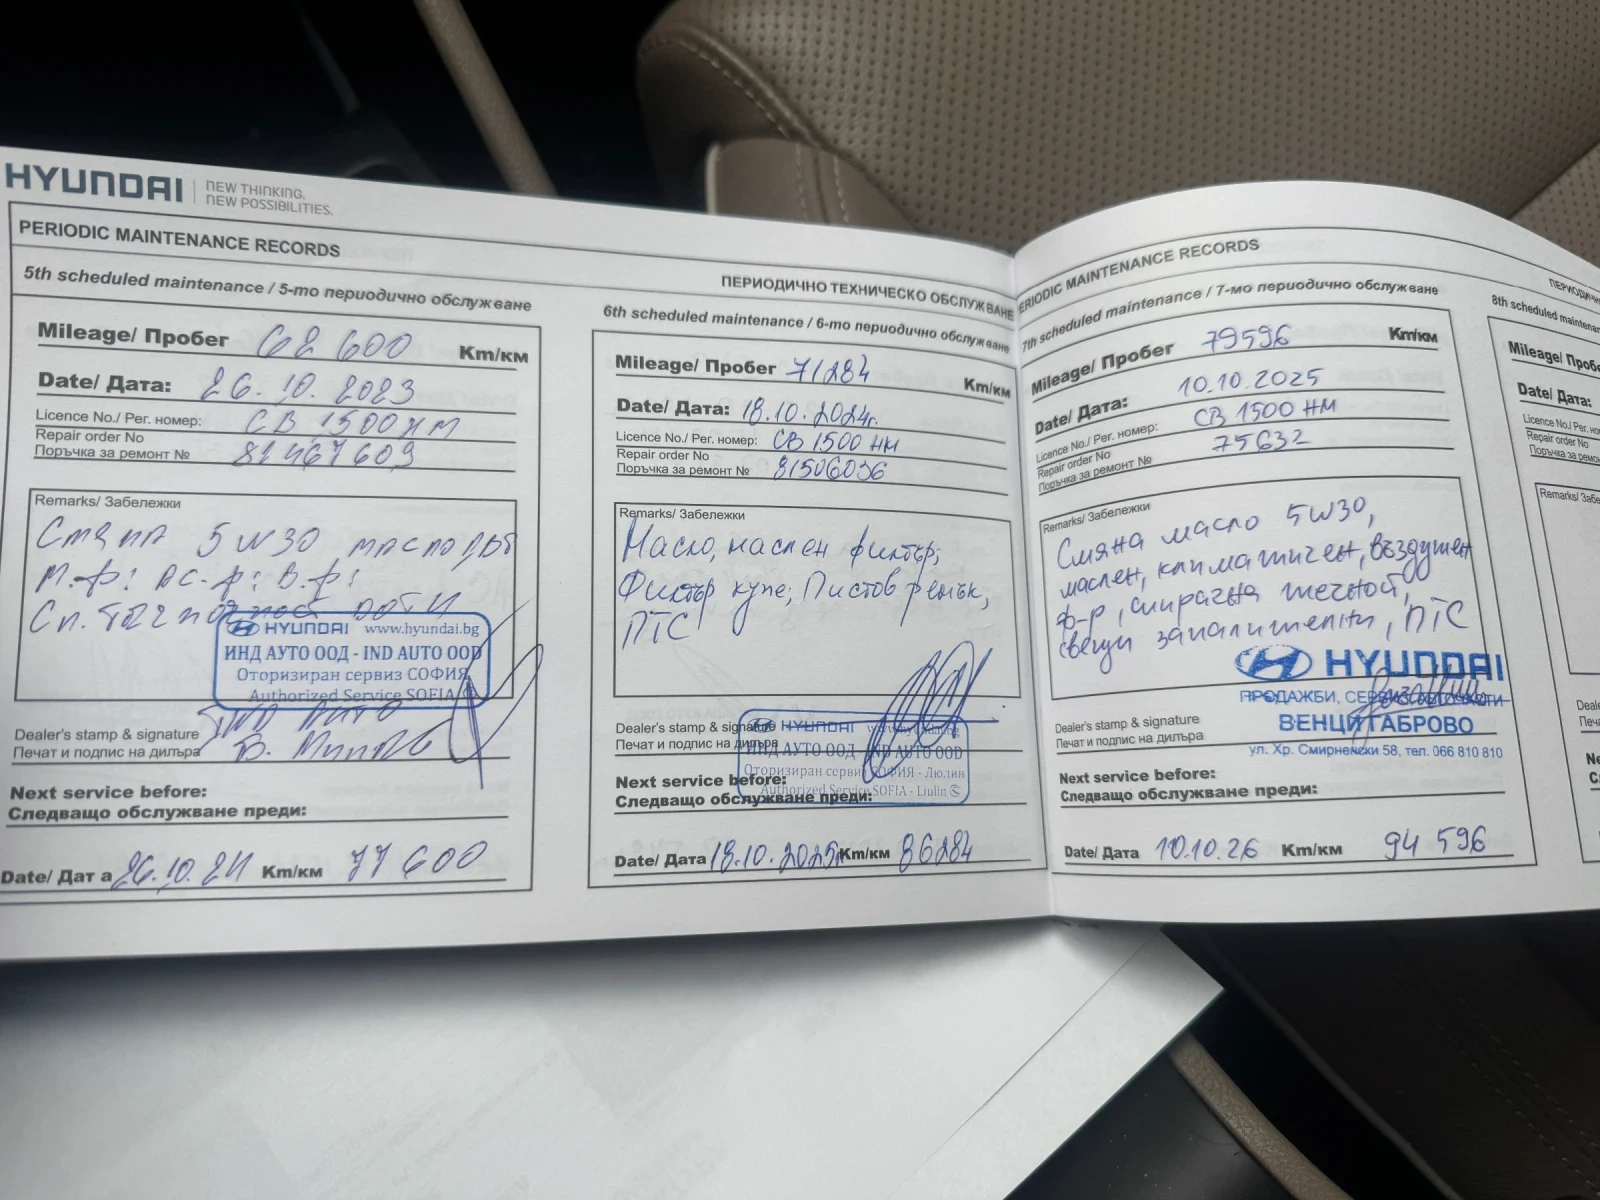 HYUNDAI | NEW THINKING.
NEW POSSIBILITIES.
PERIODIC MAINTENANCE RECORDS
ПЕРИОДИЧНО ТЕХНИЧЕСКО ОБСЛУЖВАНЕ
5th scheduled maintenance / 5-то периодично обслужване
Mileage/ Пробег 62 600 Km/км
Date/ Дата: 26.10.2023
Licence No./ Рег. номер: СВ 1500 НМ
Repair order No
Поръчка за ремонт № 81467609
Remarks/ Забележки
Смяна 5W30 масло
М.ф; В.ф;
Сп. течност
HYUNDAI www.hyundai.bg
ИНД АУТО ООД - IND AUTO OOD
Оторизиран сервиз СОФИЯ
Authorized Service SOFIA
Dealer's stamp & signature
Печат и подпис на дилъра
Next service before:
Следващо обслужване преди:
Date/ Дат а 26.10.24 Km/км 77 600
6th scheduled maintenance / 6-то периодично обслужване
Mileage/ Пробег 71284 Km/км
Date/ Дата: 18.10.2024г.
Licence No./ Рег. номер: СВ 1500 НМ
Repair order No
Поръчка за ремонт № 81506036
Remarks/ Забележки
Масло, маслен филтър;
Филтър купе; Пистов ремък;
ПТС
Dealer's stamp & signature
Печат и подпис на дилъра
HYUNDAI www.hyundai.bg
ИНД АУТО ООД - IND AUTO OOD
Оторизиран сервиз СОФИЯ - Люлин
Authorized Service SOFIA - Liulin
Next service before:
Следващо обслужване преди:
Date/ Дата 18.10.2025 Km/км 86284
PERIODIC MAINTENANCE RECORDS
7th scheduled maintenance / 7-мо периодично обслужване
Mileage/ Пробег 79596 Km/км
Date/ Дата: 10.10.2025
Licence No./ Рег. номер: СВ 1500 НМ
Repair order No
Поръчка за ремонт № 75632
Remarks/ Забележки
Смяна масло 5W30,
маслен, климатичен, въздушен
ф-р, спирачна течност,
свещи запалителни, ПТС
HYUNDAI
ПРОДАЖБИ, СЕРВИЗ, АВТОЧАСТИ
ВЕНЦИ ГАБРОВО
ул. Хр. Смирненски 58, тел. 066 810 810
Dealer's stamp & signature
Печат и подпис на дилъра
Next service before:
Следващо обслужване преди:
Date/ Дата 10.10.26 Km/км 94 596
8th scheduled maintenance
Mileage/
Date/ Дата:
Licence No./ Рег. номер:
Repair order No